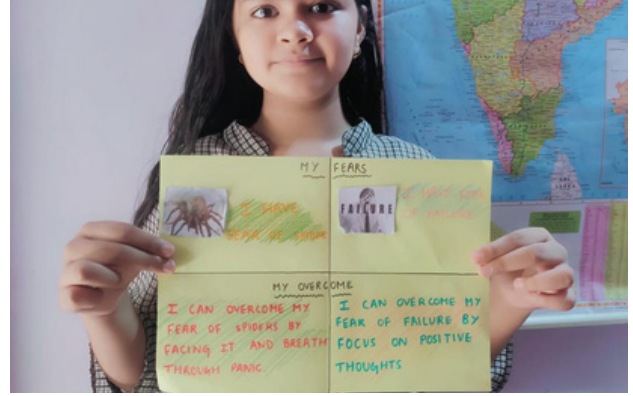 MY FEARS
I HAVE
FEAR OF SPIDER
FAILURE
I HAVE FEAR
OF FAILURE
MY OVERCOME
I CAN OVERCOME MY
FEAR OF SPIDERS BY
FACING IT AND BREATH
THROUGH PANIC.
I CAN OVERCOME MY
FEAR OF FAILURE BY
FOCUS ON POSITIVE
THOUGHTS